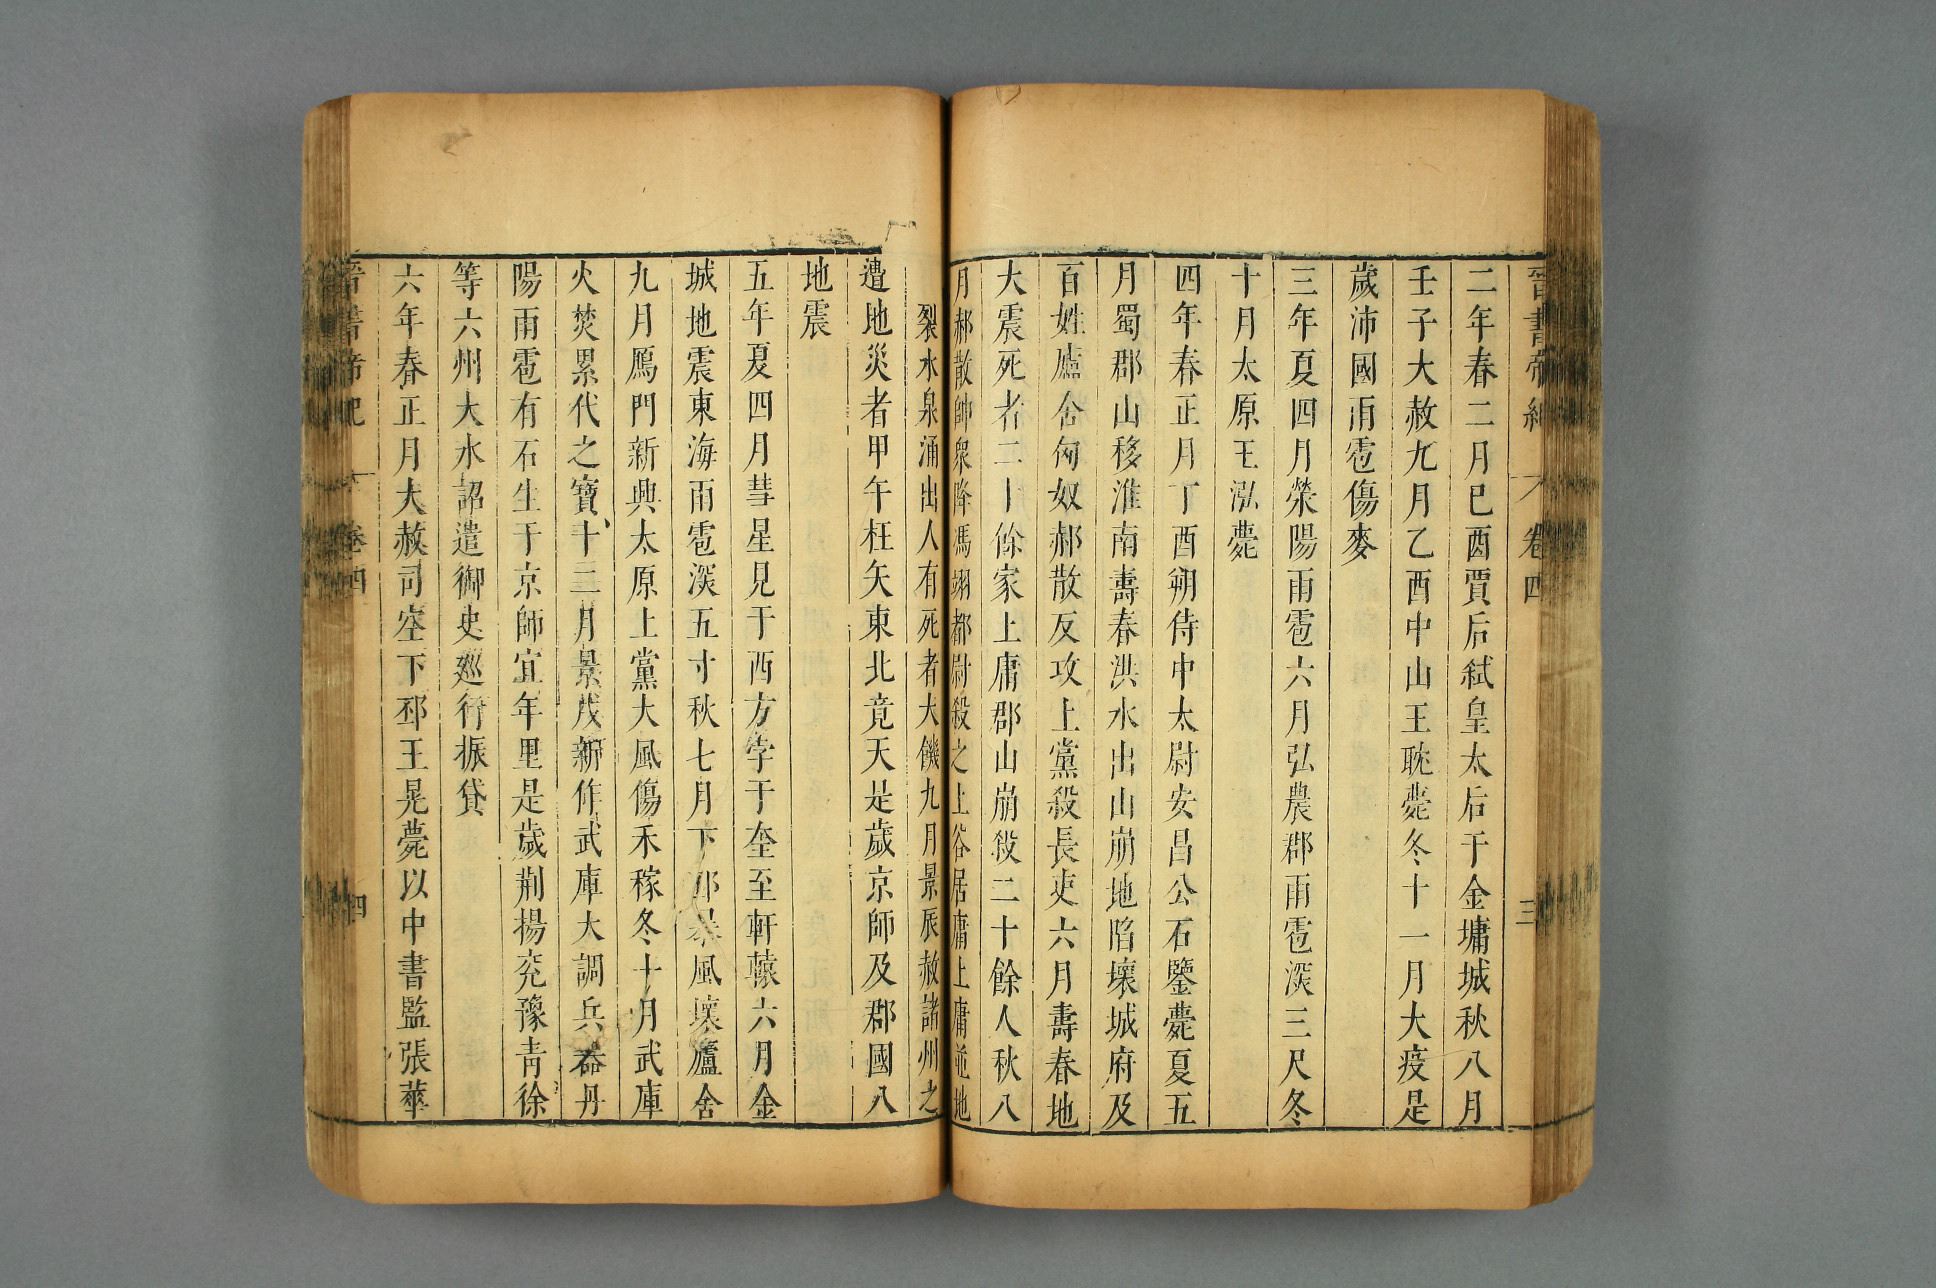 晉書帝紀 卷四 三
二年春二月巳酉賈后弑皇太后于金墉城秋八月
壬子大赦九月乙酉中山王耽薨冬十一月大疫是
歲沛國雨雹傷麥
三年夏四月滎陽雨雹六月弘農郡雨雹深三尺冬
十月太原王泓薨
四年春正月丁酉朔侍中太尉安昌公石鑒薨夏五
月蜀郡山移淮南壽春洪水出山崩地陷壞城府及
百姓廬舍匈奴郝散反攻上黨殺長吏六月壽春地
大震死者二十餘家上庸郡山崩殺二十餘人秋八
月郝散帥衆降馮翊都尉殺之上谷居庸上庸並地
裂水泉涌出人有死者大饑九月景辰赦諸州之
遭地災者甲午枉矢東北竟天是歲京師及郡國八
地震
五年夏四月彗星見于西方孛于奎至軒轅六月金
城地震東海雨雹深五寸秋七月下邳暴風壞廬舍
九月鴈門新興太原上黨大風傷禾稼冬十月武庫
火焚累代之寶十二月景戌新作武庫大調兵器丹
陽雨雹有石生于京師宜年里是歲荆揚兖豫青徐
等六州大水詔遣御史廵行振貸
六年春正月大赦司空下邳王晃薨以中書監張華
晉書帝紀 卷四 四